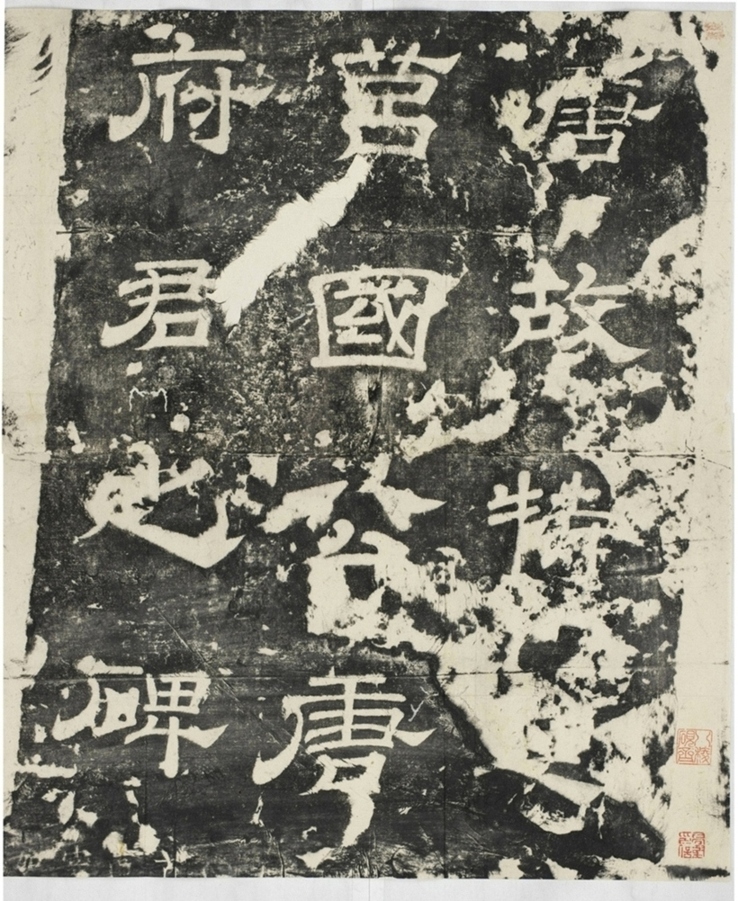 唐故特
莒國公唐
府君之碑